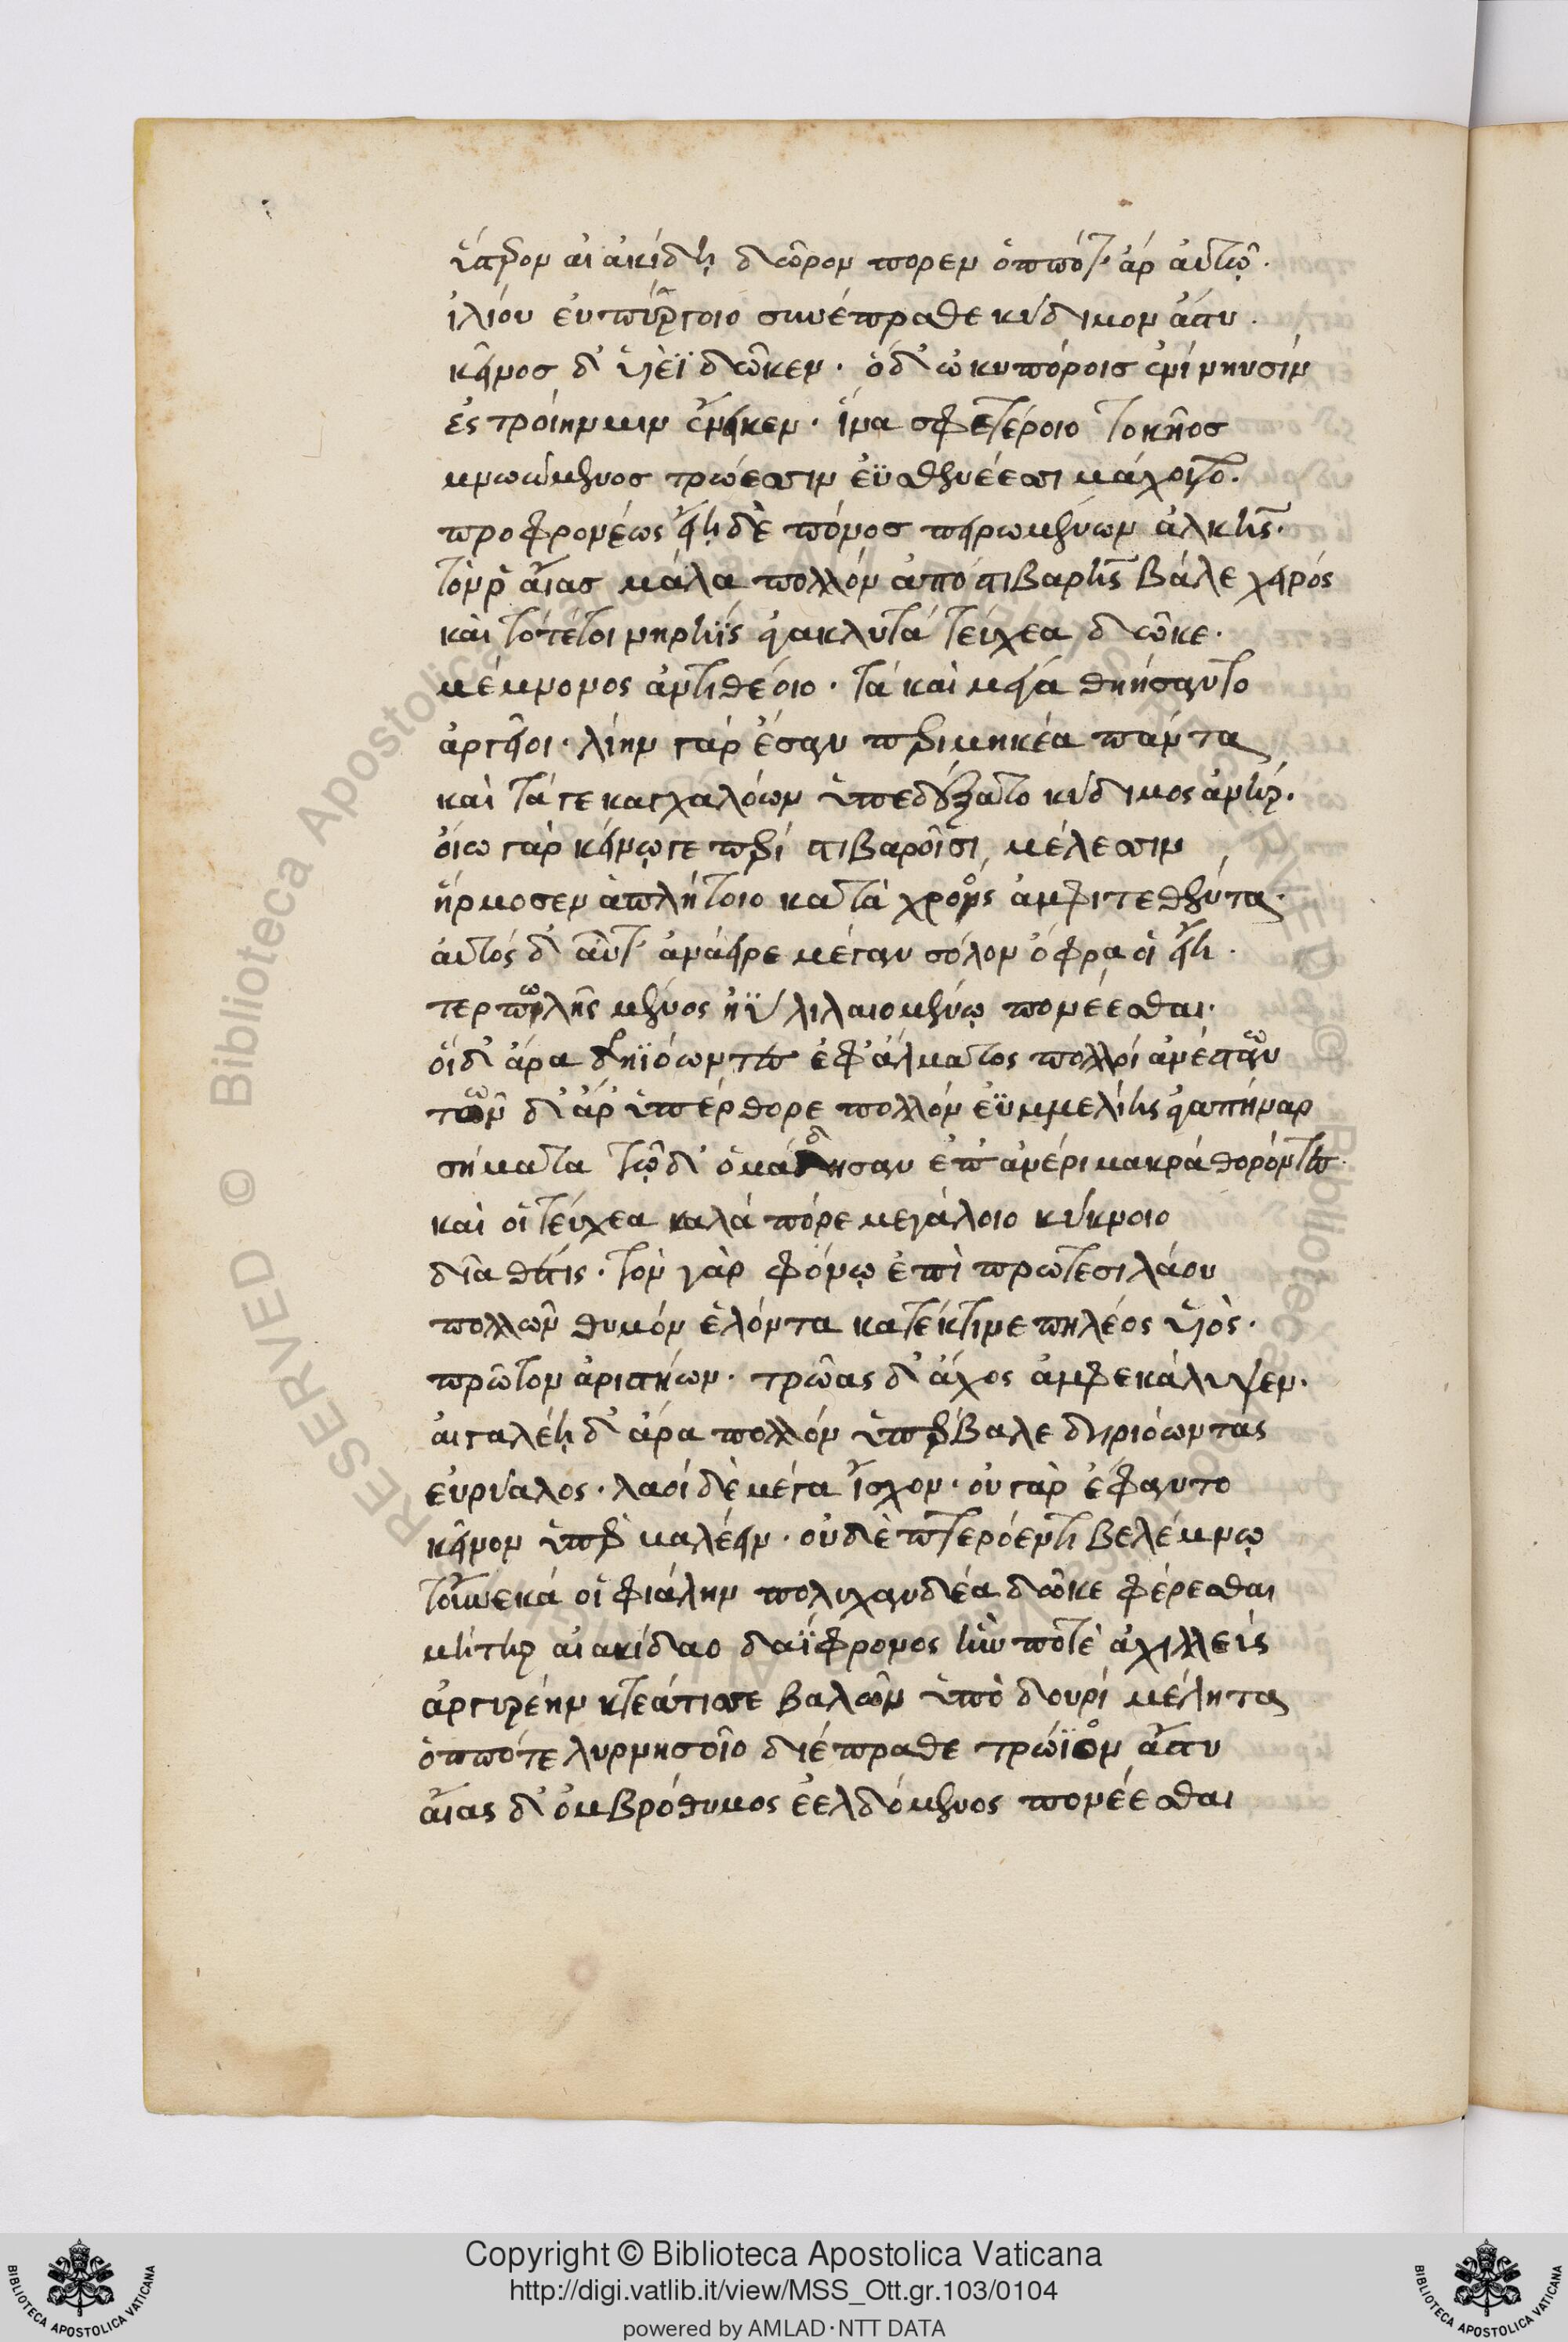 ὕστερον αἰακίδῃ δῶρον πορεν ὁππότ' ἄρ αὐτῷ.
ἰλίου εὐπύργοιο συνέπραθε κύδιμον ἄστυ.
κεῖνος δ' υἱέϊ δῶκεν. ὁ δ' ὠκυπόροισ ἐνὶ νηυσίν
ἐς τροίην μιν ἔνεικεν. ἵνα σφετέροιο τοκῆοσ
μνωώμενοσ τρώεσσιν ἐϋσθενέεσσι μάχοιτο.
προφρονέως εἵῃ δὲ πόνοσ πειρωμένων ἀλκῆς.
τόν ῥ' αἴασ μάλα πολλόν ἀπὸ στιβαρῆς βάλε χειρός
καὶ τότέ τοι νηρηΐς ἀγακλυτά τεύχεα δῶκε.
μέμνονος ἀντιθέοιο. τά καὶ μεγά θηήσαντο
ἀργεῖοι. λίην γάρ ἔσαν περιμηκέα πάντα
καὶ τά γε καγχαλόων ὑπεδέξατο κύδιμος ἀνήρ.
οἴῳ γάρ κείνῳ γε περί στιβαροῖσι μέλεσσιν
ἥρμοσεν ἀπλήτοιο κατὰ χροός ἀμφιτεθέντα.
αὐτός δ' αὖτ' ἀνάειρε μέγαν σόλον ὄφρα οἱ εἴη.
τερπωλῆς μένος ἠῢ λιλαιομένῳ πονέεσθαι.
οἱ δ' ἄρα δηϊόωντες ἐφ' ἅλματος πολλοί ἀνέσταν
τῶν δ' ἄρ' ὑπέρθορε πολλόν ἐϋμμελίης ἀγαπήνωρ
σήματα τῷ δ' ὁμάδησαν ἐπ' ἀνέρι μακρά θορόντες.
καὶ οἱ τεύχεα καλά πόρε μεγάλοιο κύκνοιο
δῖα θέτις. τόν γὰρ φόνῳ ἐπὶ πρωτεσιλάου
πολλῶν θυμόν ἑλόντα κατέκτανε πηλέος υἱὸς.
πρῶτον ἀριστήων. τρῶας δ' ἄχος ἀμφεκάλυψεν.
αἰγανέῃ δ' ἄρα πολλόν ὑπέρβαλε δηριόωντας
εὐρύαλος. λαοί δὲ μέγα ἴσχον. οὐ γὰρ ἔφαντο
κεῖνον ὑπὲρ βαλέειν. οὐδὲ πτερόεντι βελέμνῳ
τοὔνεκά οἱ φιάλην πολυχανδέα δῶκε φέρεσθαι
μήτηρ αἰακίδαο δαΐφρονος ἣν ποτὲ ἀχιλλεύς
ἀργυρέην κτεάτισσε βαλὼν ὑπὸ δουρί μύνητα
ὁππότε λυρνησσοῖο διέπραθε τρώϊον ἄστυ
αἴας δ' ὀμβρόθυμος ἐελδόμενος πονέεσθαι
Copyright © Biblioteca Apostolica Vaticana
http://digi.vatlib.it/view/MSS_Ott.gr.103/0104
powered by AMLAD·NTT DATA